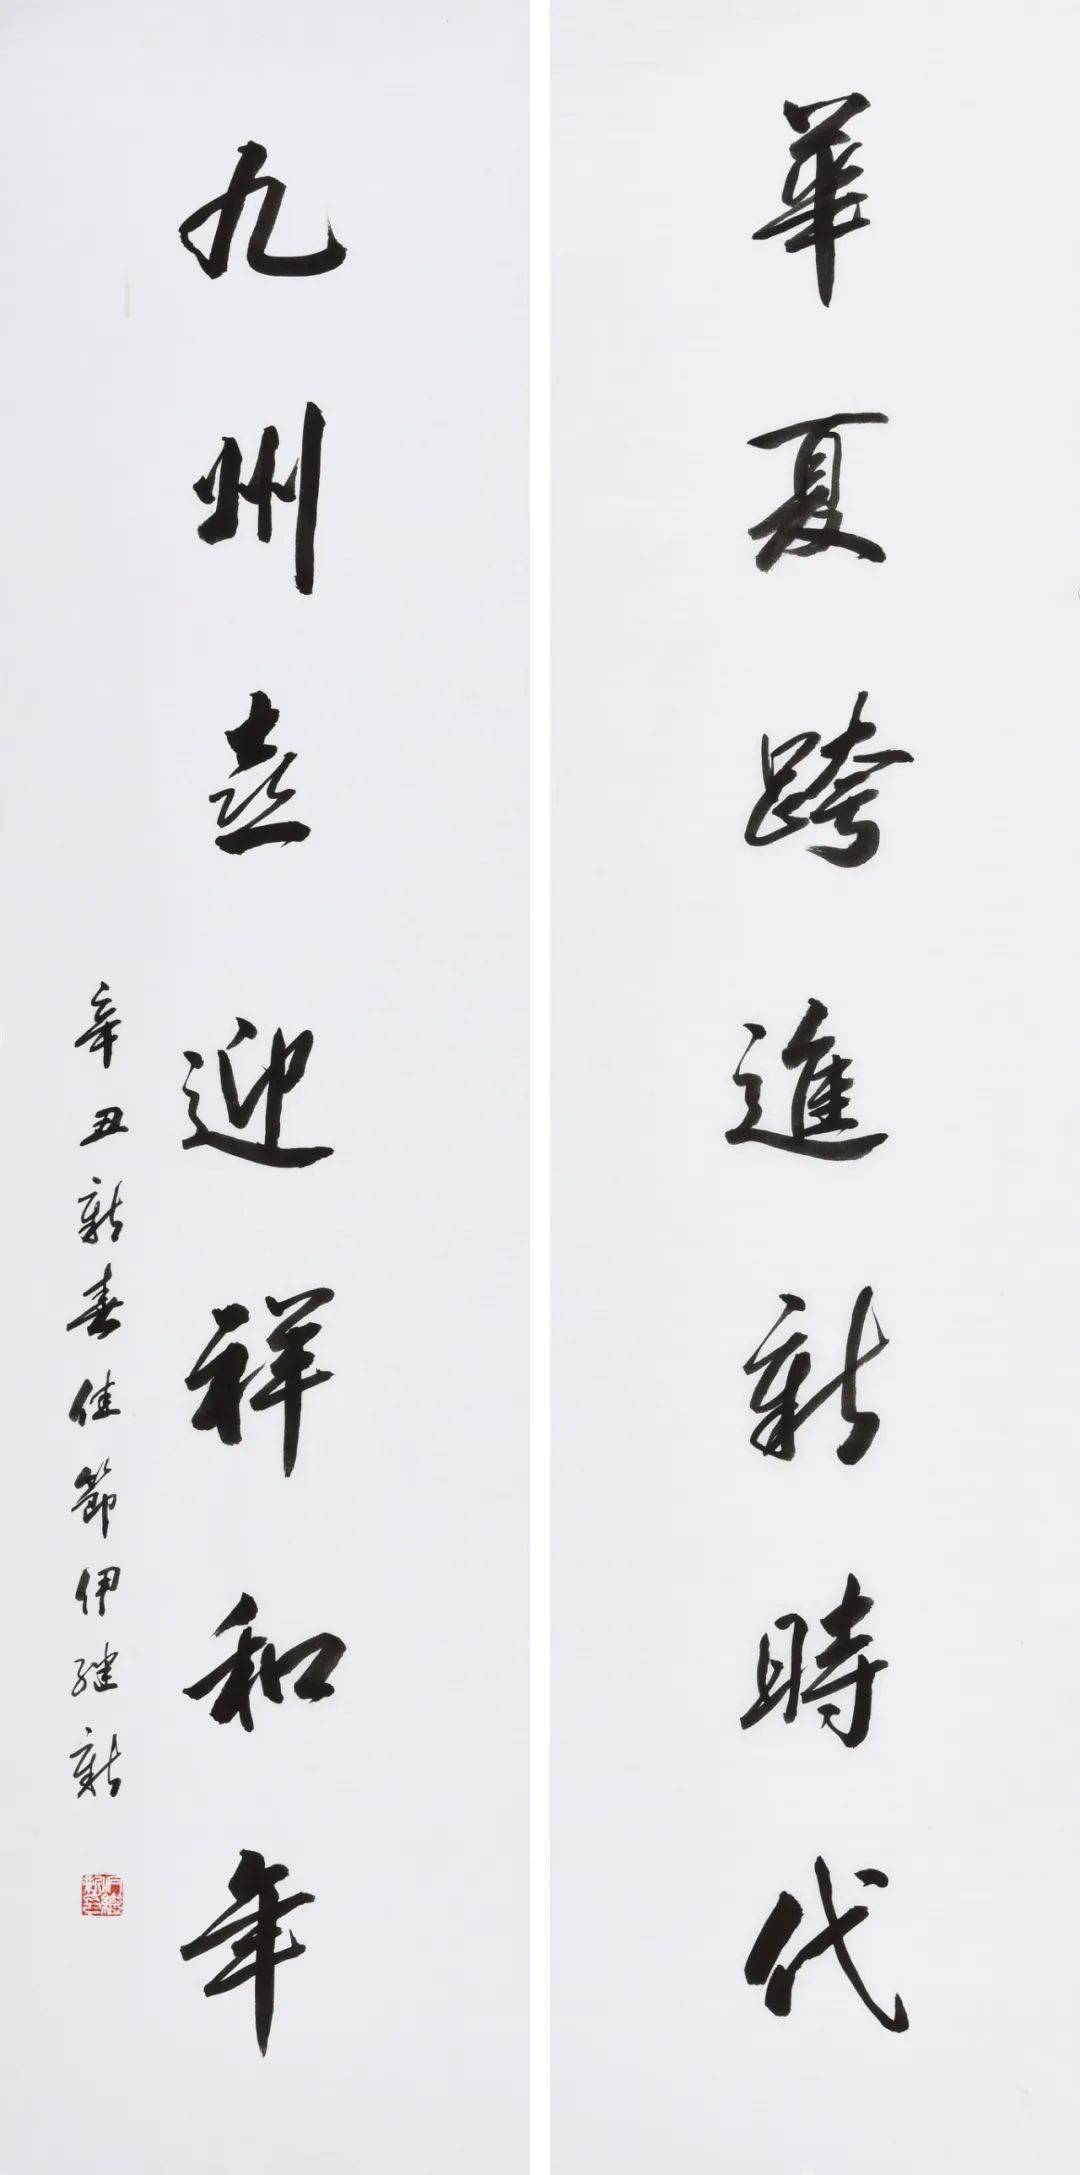 華夏跨進新時代
九州喜迎祥和年
辛丑新春佳節伊继新